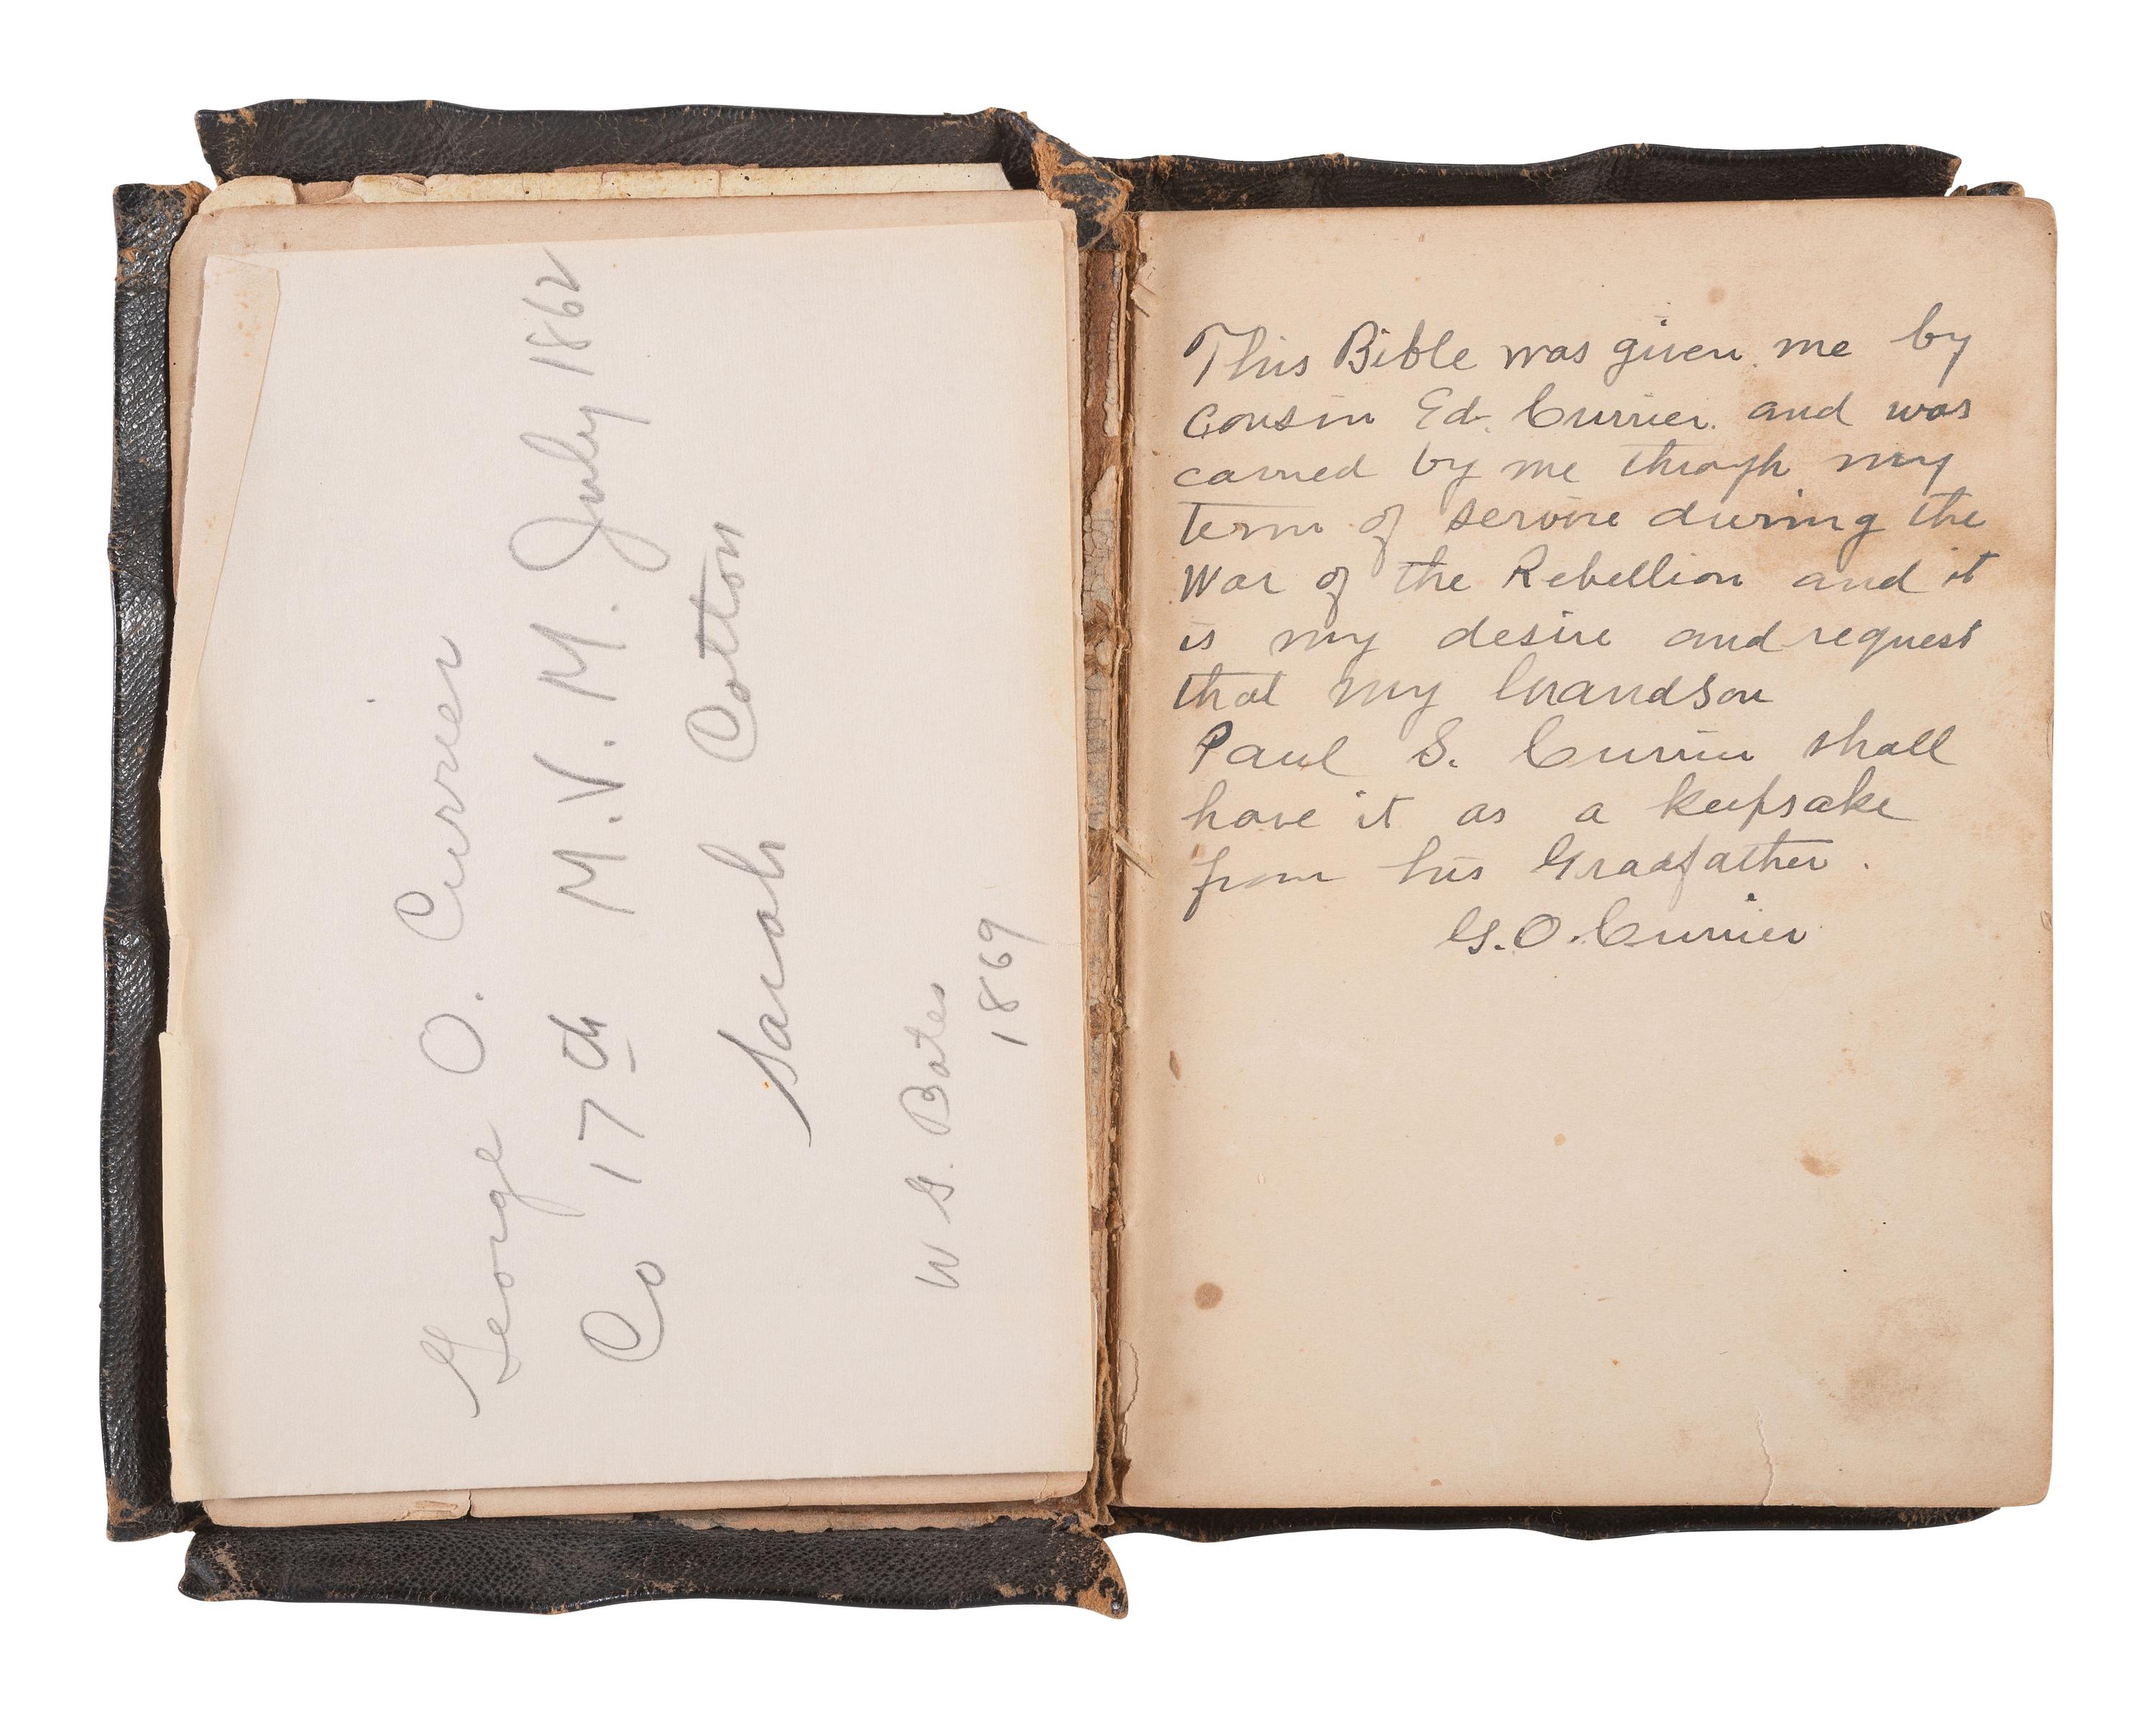 George O. Currier
Co 17th M.V.M. July 1862
Sarah Cotton
W G. Bates
1869
This Bible was given me by
Cousin Ed. Currier. and was
carried by me through my
term of service during the
War of the Rebellion and it
is my desire and request
that my Grandson
Paul S. Currier shall
have it as a keepsake
from his Gradfather.
G. O. Currier